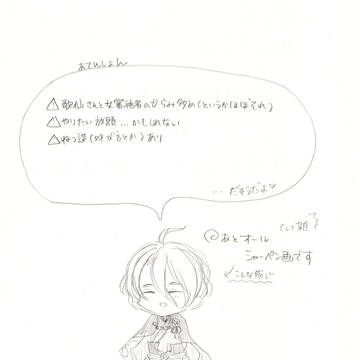 あてんしょん
⚠歌仙さんと女審神者のからみ多め(というかほぼそれ)
⚠やりたい放題…かもしれない
⚠ねつ造(味方とか)あり
…だそうだよ♡
◎あとオール
シャーペン画です
そして雑
↙こんな感じ